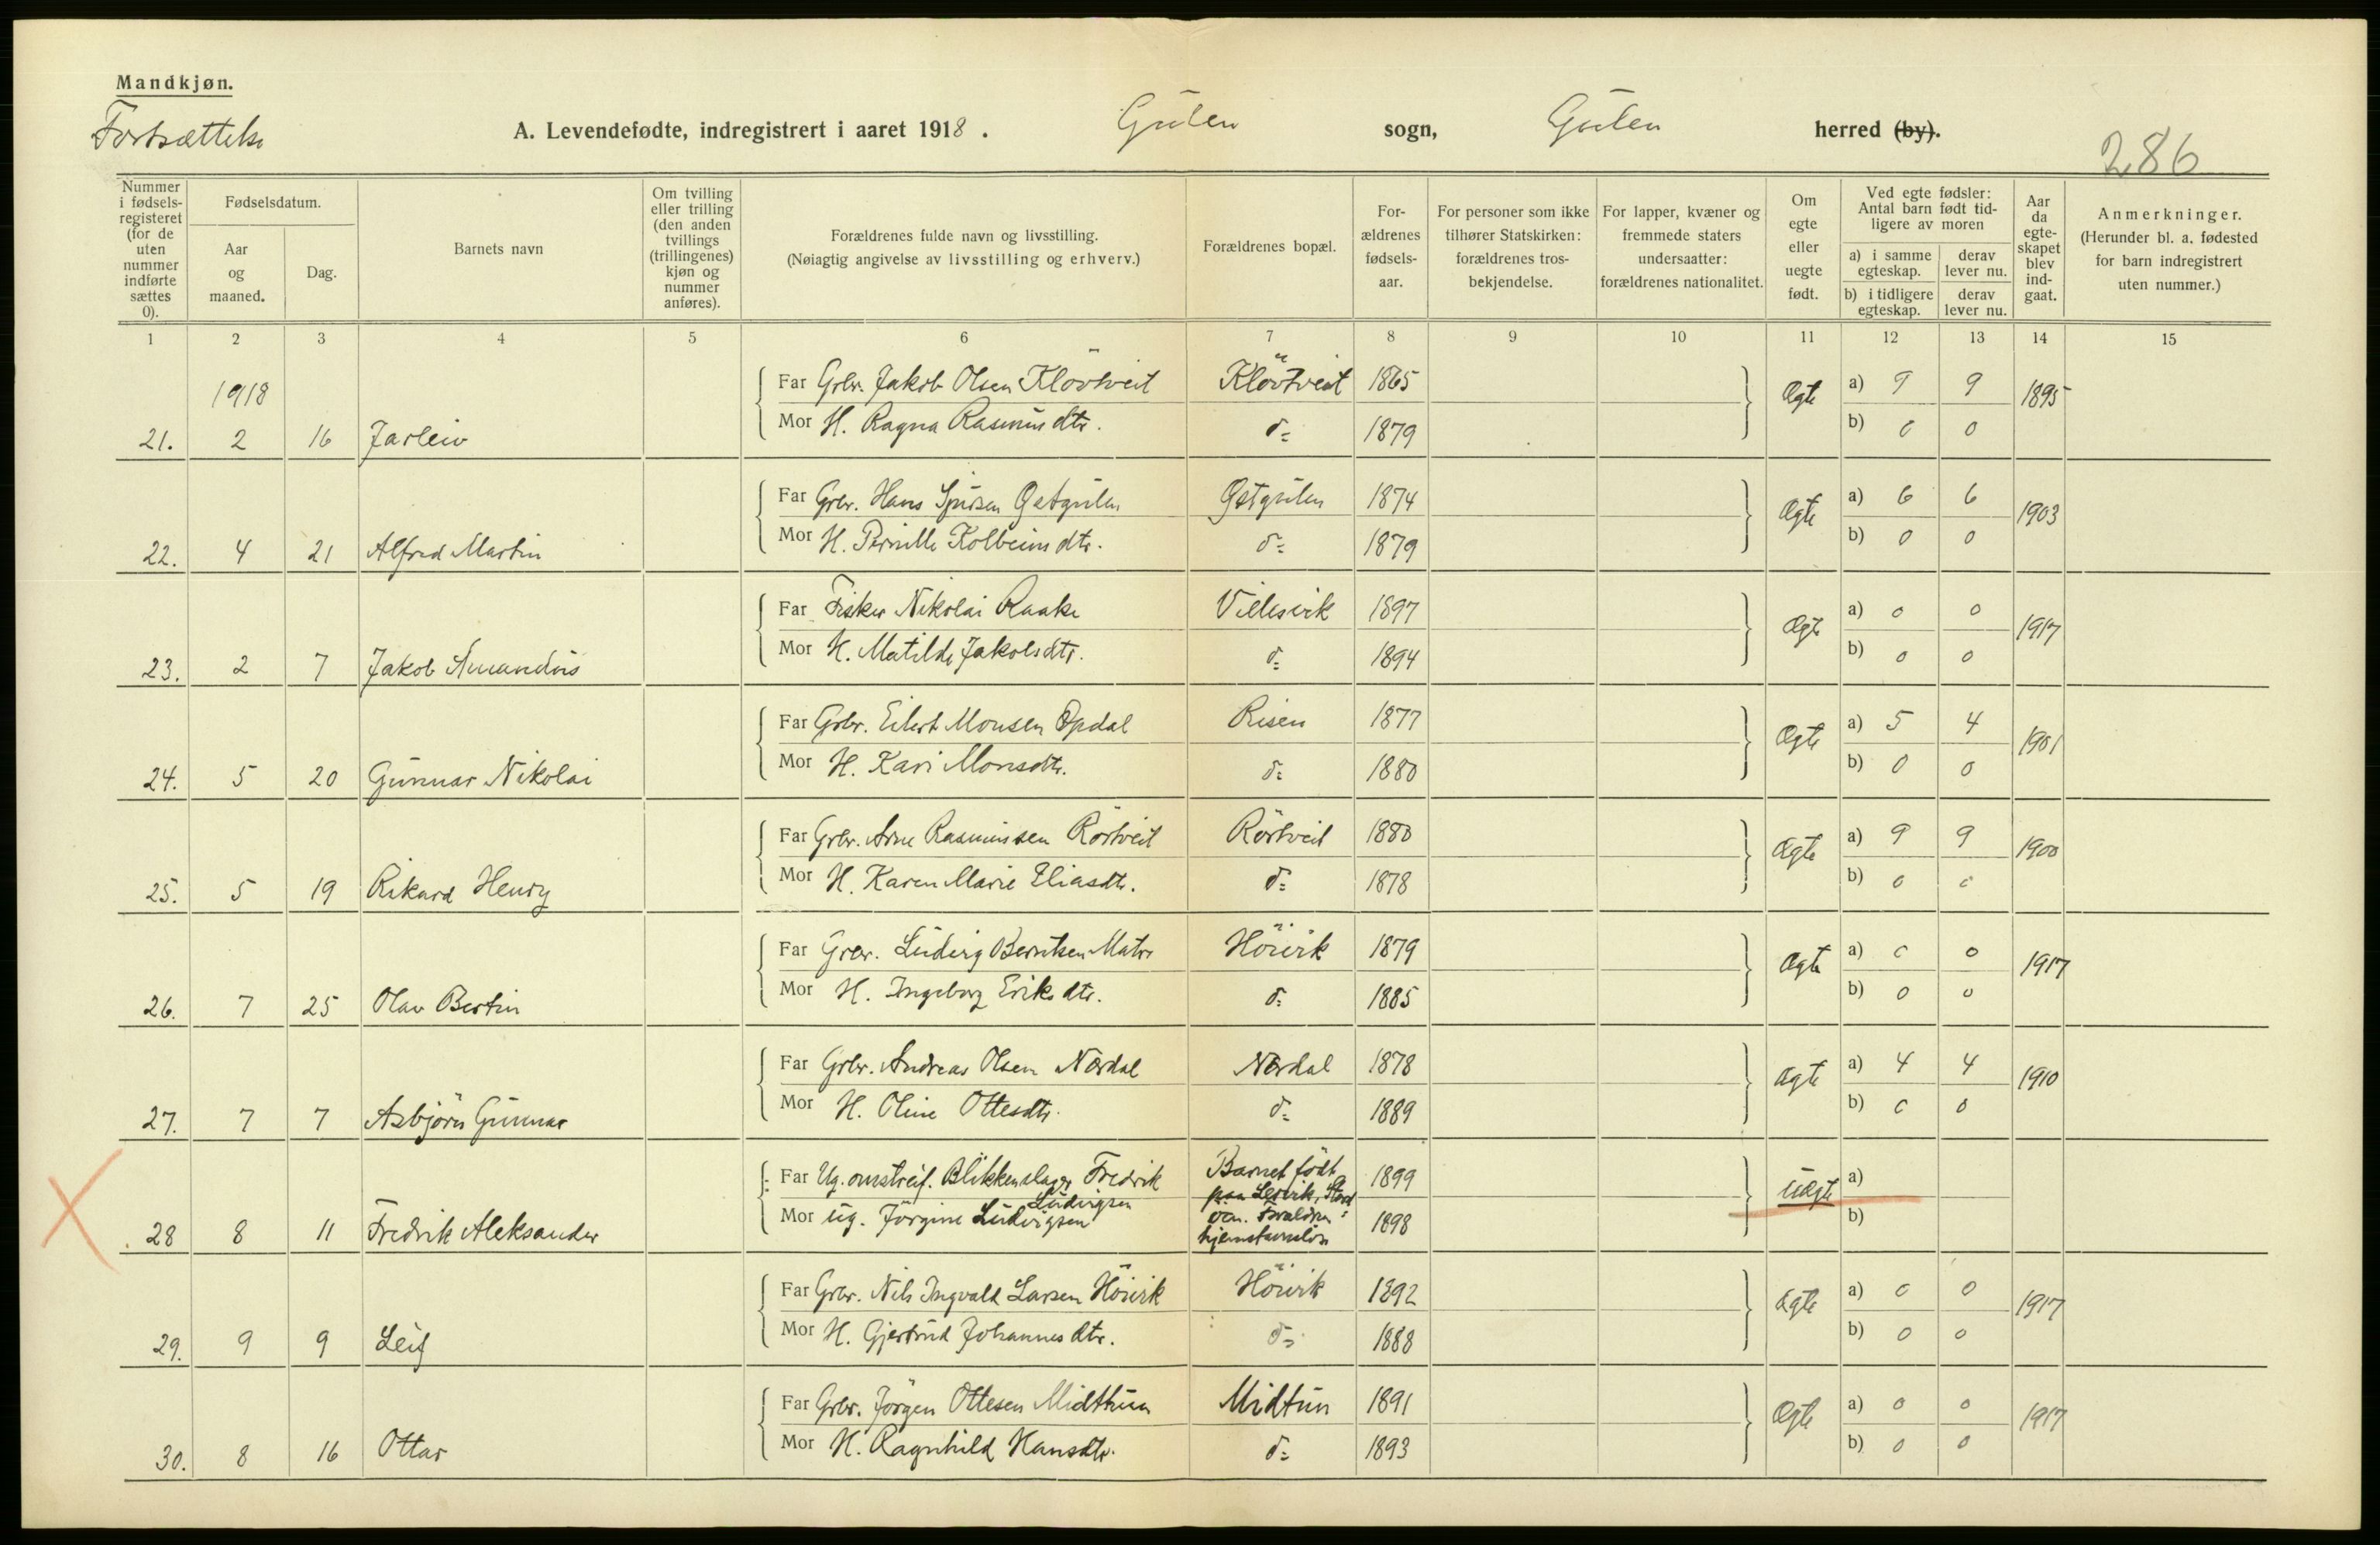 Mandkjøn.
Fortsættelse
A. Levendefødte, indregistrert i aaret 1918. Gulen sogn, Gulen herred (by).
286
Nummer i fødselsregisteret (for de uten nummer indførte sættes 0).
Fødselsdatum.
Aar og maaned.
Dag.
Barnets navn
Om tvilling eller trilling (den anden tvillings (trillingenes) kjøn og nummer anføres).
Forældrenes fulde navn og livsstilling.
(Nøiagtig angivelse av livsstilling og erhverv.)
Forældrenes bopæl.
Forældrenes fødselsaar.
For personer som ikke tilhører Statskirken: forældrenes trosbekjendelse.
For lapper, kvæner og fremmede staters undersaatter: forældrenes nationalitet.
Om egte eller uegte født.
Ved egte fødsler: Antal barn født tidligere av moren
a) i samme egteskap. derav lever nu.
b) i tidligere egteskap. derav lever nu.
Aar da egteskapet blev indgaat.
Anmerkninger.
(Herunder bl. a. fødested for barn indregistrert uten nummer.)
1 2 3 4 5 6 7 8 9 10 11 12 13 14 15
1918
Far Grbr. Jakob Olsen Klövtveit Klövtveit 1865 Ægte a) 9 9 1895
21. 2 16 Jarleiv Mor H. Ragna Rasmusdtr. d: 1879 b) 0 0
Far Grbr. Hans Sjursen Østgulen Østgulen 1874 Ægte a) 6 6 1903
22. 4 21 Alfred Martin Mor H. Pernille Kolbeinsdtr. d: 1879 b) 0 0
Far Fisker Nikolai Raake Villesvik 1897 Ægte a) 0 0 1917
23. 2 7 Jakob Amandus Mor H. Matilde Jakobsdtr. d: 1894 b) 0 0
Far Grbr. Eilert Monsen Opdal Risen 1877 Ægte a) 5 4 1901
24. 5 20 Gunnar Nikolai Mor H. Kari Monsdtr. d: 1880 b) 0 0
Far Grbr. Arne Rasmussen Rörtveit Rörtveit 1880 Ægte a) 9 9 1900
25. 5 19 Rikard Henry Mor H. Karen Marie Eliasdtr. d: 1878 b) 0 0
Far Grbr. Ludvig Berntsen Matre Höivik 1879 Ægte a) 0 0 1917
26. 7 25 Olav Bertin Mor H. Ingeborg Eriksdtr. d: 1885 b) 0 0
Far Grbr. Andreas Olsen Nordal Nordal 1878 Ægte a) 4 4 1910
27. 7 7 Asbjörn Gunnar Mor H. Oline Ottesdtr. d: 1889 b) 0 0
Far Ug. omstreif. Blikkenslager Fredrik Ludvigsen Barnet födt paa Lervik, Stord 1899 Uægte a)
28 8 11 Fredrik Aleksander Mor ug. Jörgine Ludvigsen Forældre hjemstavnslös 1898 b)
Far Grbr. Nils Ingvald Larsen Höivik Höivik 1892 Ægte a) 0 0 1917
29. 9 9 Leif Mor H. Gjertrud Johannesdtr. d: 1888 b) 0 0
Far Grbr. Jörgen Ottesen Midthun Midtun 1891 Ægte a) 0 0 1917
30. 8 16 Ottar Mor H. Ragnhild Hansdtr. d: 1893 b) 0 0